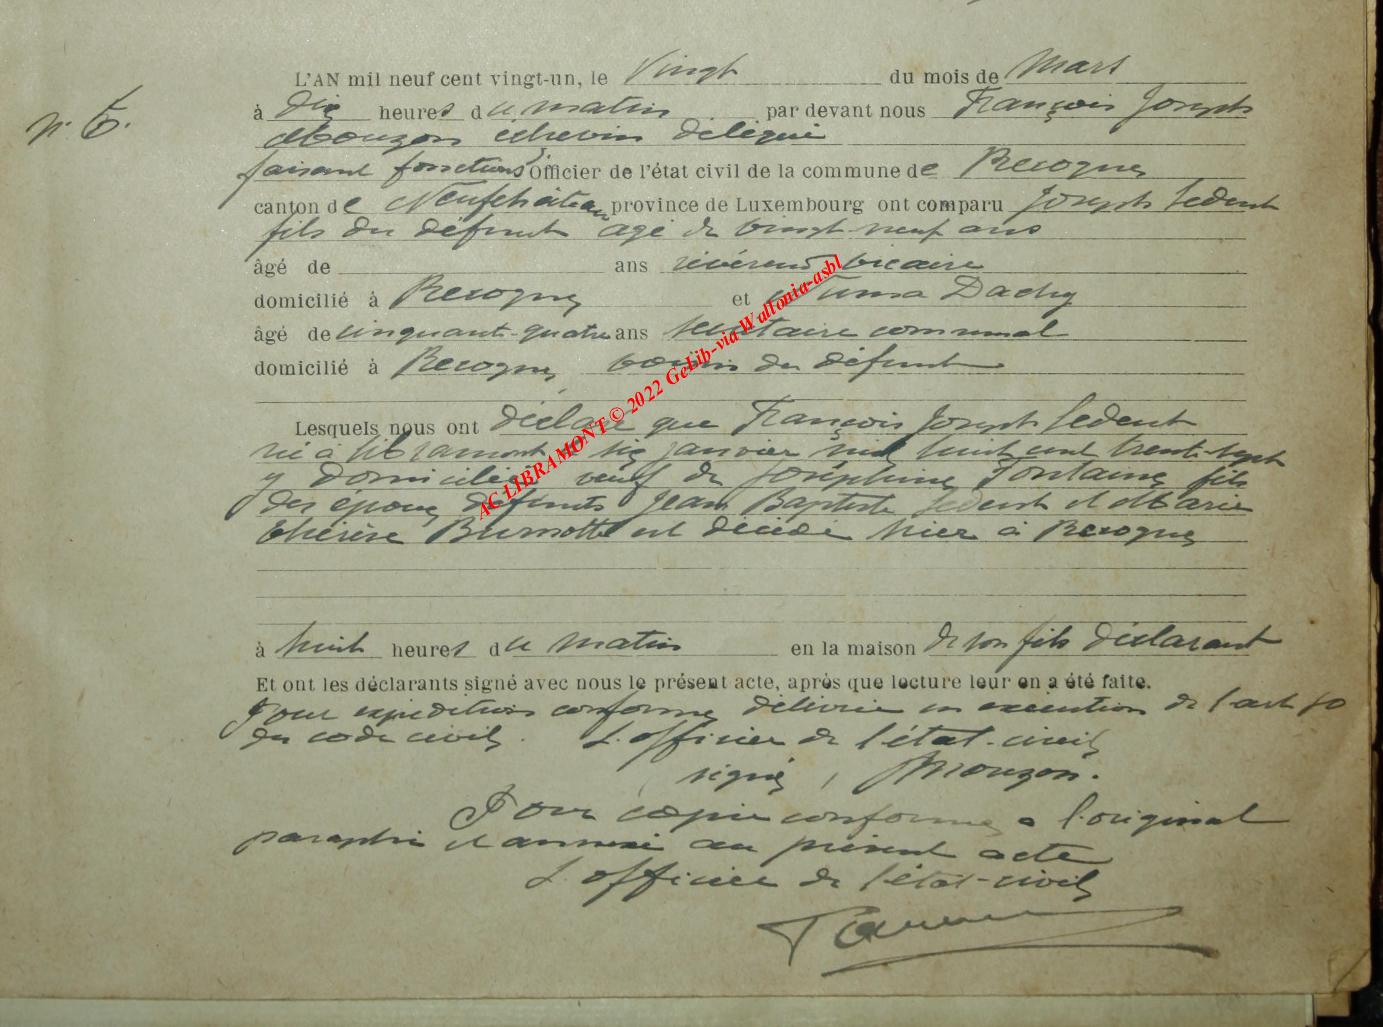 L'AN mil neuf cent vingt-un, le Vingt du mois de Mars
n° 6.
à dix heures du matin par devant nous François Joseph
Mouzon échevin délégué
faisant fonctions d'officier de l'état civil de la commune de Recogne
canton de Neufchâteau province de Luxembourg ont comparu Joseph Sedent
fils du défunt agé de vingt neuf ans
âgé de ans révérend vicaire
domicilié à Recogne et Numa Dachy
âgé de cinquante-quatre ans secrétaire communal
domicilié à Recogne voisin du défunt
Lesquels nous ont déclaré que François Joseph Sedent
né à Libramont le six janvier mil huit cent trente-sept
y domicilié veuf de Joséphine Fontaine fils
des époux défunts Jean Baptiste Sedent et Marie
Thérèse Burnotte est décédé hier à Recogne
à huit heures du matin en la maison de son fils déclarant
Et ont les déclarants signé avec nous le présent acte, après que lecture leur en a été faite.
Pour expédition conforme délivrée en exécution de l'art 80
du code civil. L'officier de l'état-civil
signé, Mouzon.
Pour copie conforme a l'original
paraphé et annexé au présent acte
L'officier de l'état-civil
AC LIBRAMONT © 2022 GeLib-via Wallonia-asbl